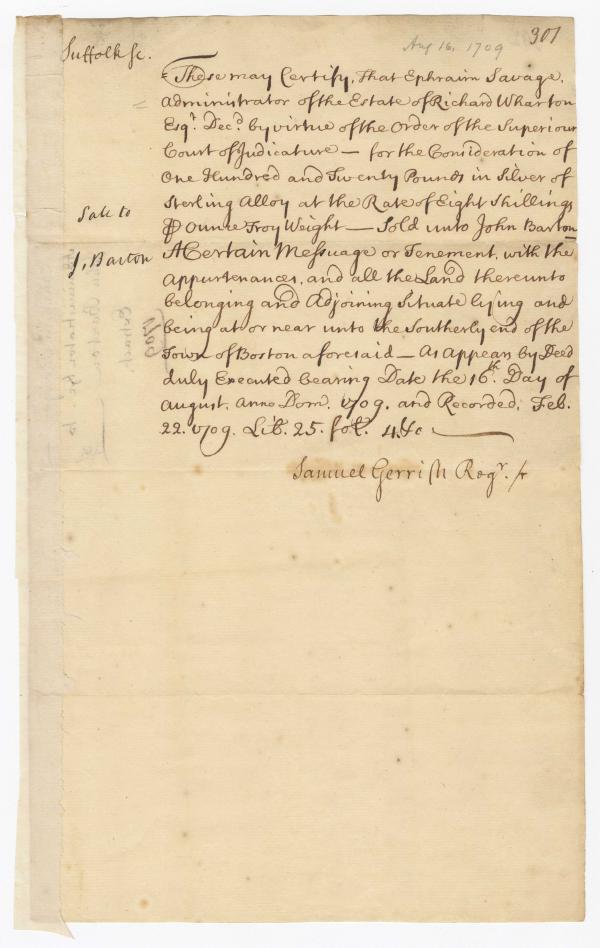 Aug 16, 1709
301
Suffolk sc.
These may Certify, That Ephraim Savage,
Administrator of the Estate of Richard Wharton
Esqr. Decd. by virtue of the Order of the Superiour
Court of Judicature — for the Consideration of
One Hundred and Twenty Pounds in Silver of
Sterling Alloy at the Rate of Eight Shillings
⅌ Ounce Troy Weight — Sold unto John Barton
Sale to
J. Barton
A Certain Messuage or Tenement, with the
appurtenances, and all the Land thereunto
belonging and Adjoining Situate lying and
being at or near unto the Southerly end of the
Town of Boston aforesaid — As Appears by Deed
duly Executed bearing Date the 16th. Day of
August, Anno Dom. 1709. and Recorded, Feb.
22. 1709. Lib. 25. fol.
Samuel Gerrish Regr.